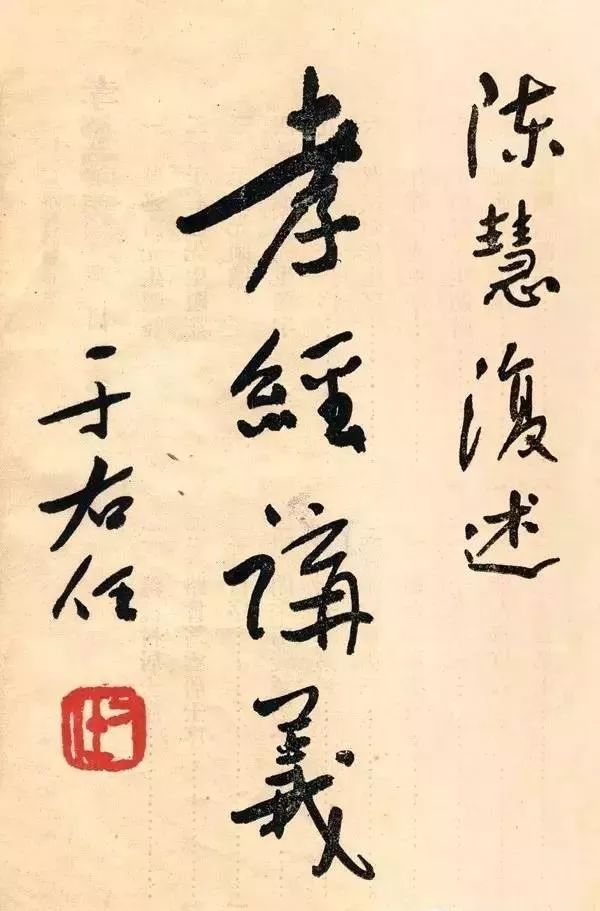 陳慧復述
孝經講義
于右任
右任